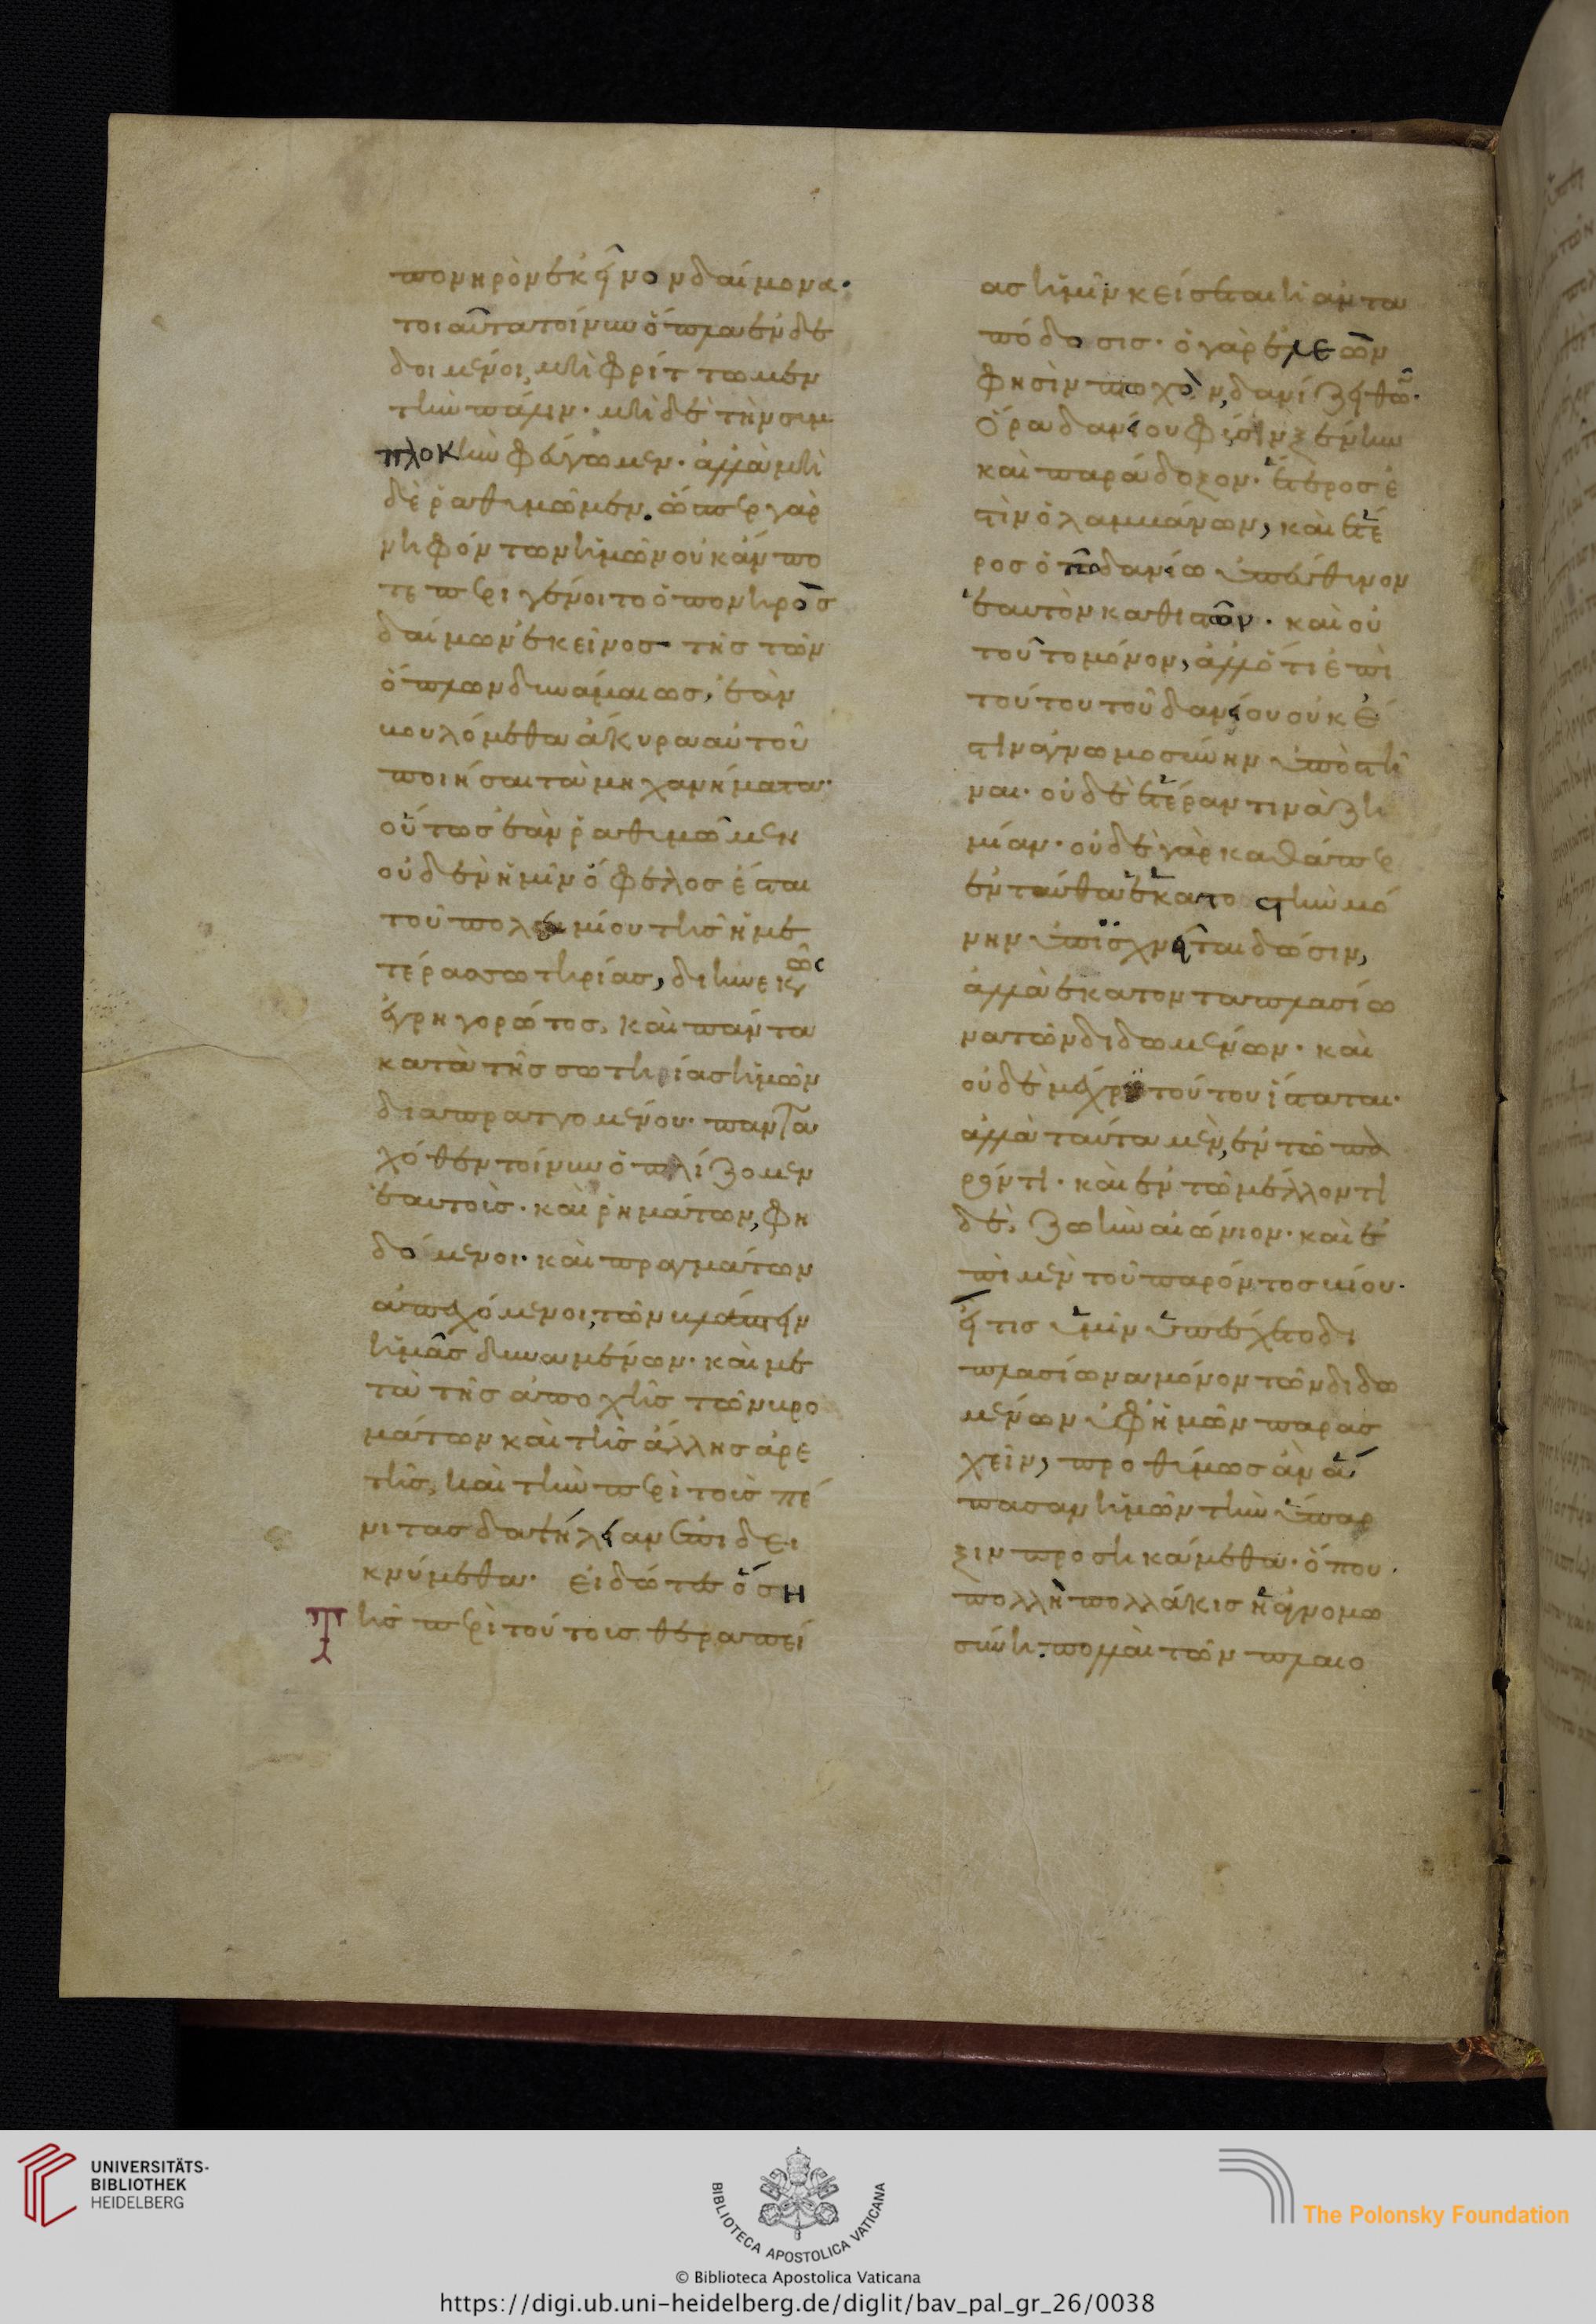 πονηρὸν ἐκεῖνον δαίμονα·
τοιαῦτα τοίνυν ὅπλα ἐνδε
δοιμένοι, μὴ φρίττωμεν
τὴν πάλιν· μὴ δὲ τὴν συμ
πλοκὴν φεύγωμεν· ἀλλὰ μὴ
δὲ ῥαθυμῶμεν. ὥσπερ γὰρ
νηφόντων ἡμῶν οὐκ ἄν πο
τε περιγένοιτο ὁ πονηρὸς
δαίμων ἐκεῖνος τῆς τῶν
ὅπλων δυνάμεως, ἐὰν
βουλόμεθα ἄκυρα αὐτοῦ
ποιῆσαι τὰ μηχανήματα·
οὕτως ἐὰν ῥαθυμῶμεν
οὐδὲν ἡμῖν ὄφελος ἔσται
τοῦ πολεμίου τῆς ἡμε
τέρας σωτηρίας, διηνεκῶς
ἐγρηγορότος, καὶ πάντα
κατὰ τῆς σωτηρίας ἡμῶν
διαπραττομένου· παντα
χόθεν τοίνυν ὁπλίζομεν
ἑαυτοὺς· καὶ ῥημάτων, φη
δόμενοι· καὶ πραγμάτων
ἀπεχόμενοι, τῶν βλάπτειν
ἡμᾶς δυναμένων· καὶ με
τὰ τῆς ἀποχῆς τῶν βρω
μάτων καὶ τῆς ἄλλης ἀρε
τῆς, καὶ τὴν περὶ τοὺς πέ
νιτας δαψήλειαν ἐπιδει
κνύμεθα· εἰδότες ὅση
Τῆς περὶ τούτοις θεραπεί
ας ἡμῖν κείσεται ἡ ἀντα
πόδοσις· ὁ γὰρ ἐλεῶν
φησὶν πτωχὸν, δανίζει θῶ·
Ὅρα δανίου φύσιν ξένην
καὶ παράδοξον· ἕτερος ἐ
στὶν ὁ λαμβάνων, καὶ ἕτε
ρος ὁ τῶ δανίω ὑπεύθυνον
ἑαυτὸν καθιστῶν· καὶ οὐ
τοῦτο μόνον, ἀλλ' ὅτι ἐπὶ
τούτου τοῦ δανείου οὐκ ἔ
στιν ἀγνωμοσύνην ὑποστῆ
ναι· οὐδὲ ἑτέραν τινὰ ζη
μίαν· οὐδὲ γὰρ καθάπερ
ἐνταῦθα ἑκατοστὴν μό
νην ὑπισχνεῖται δώσιν,
ἀλλὰ ἑκατονταπλασίω
να τῶν διδωμένων· καὶ
οὐδὲ μέχρι τούτου ἵσταται·
ἀλλὰ ταῦτα μὲν, ἐν τῶ πα
ρόντι· καὶ ἐν τῶ μέλλοντι
δὲ, ζωὴν αἰώνιον· καὶ ἐ
πὶ μὲν τοῦ παρόντος βίου·
εἴ τις ὑμῖν ὑπέσχετο δι
πλασίωνα μόνον τῶν διδω
μένων ὑφ' ἡμῶν παρασ
χεῖν, προθύμως ἂν ἅ
πασαν ἡμῶν τὴν ὕπαρ
ξιν προσηκάμεθα· ὅπου
πολλὴ πολλάκις ἡ ἀγνομω
σύνη. πολλαὶ τῶν πλαιο
UNIVERSITÄTS-
BIBLIOTHEK
HEIDELBERG
BIBLIOTECA APOSTOLICA VATICANA
The Polonsky Foundation
© Biblioteca Apostolica Vaticana
https://digi.ub.uni-heidelberg.de/diglit/bav_pal_gr_26/0038